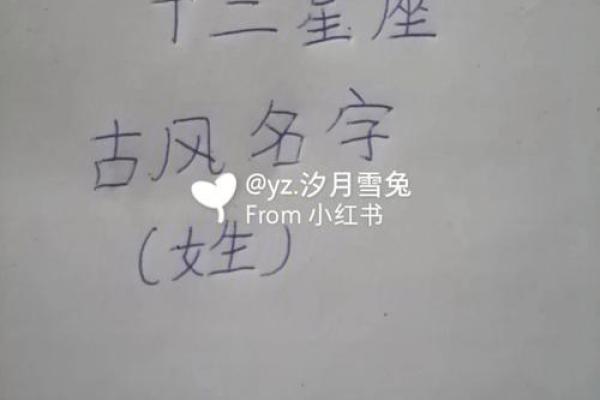 十二星座
古风名字
@yz.汐月雪兔
From 小红书
(姓)